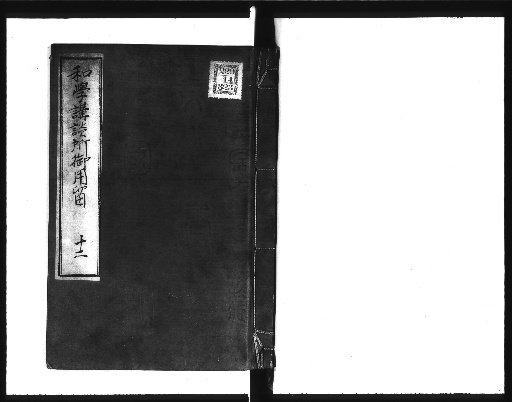 和學講談所御用留
十二